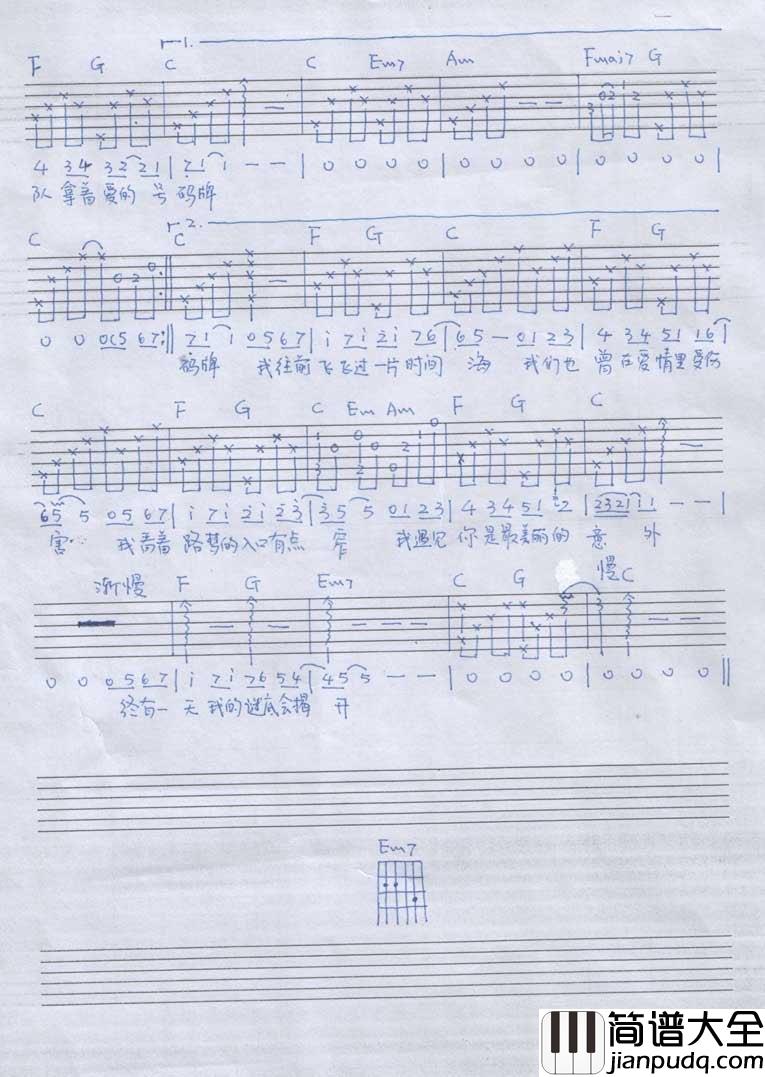 1.
F G C C Em7 Am Fmaj7 G
4 34 32 21 | 7 1 i - - | 0 0 0 0 | 0 0 0 0 | 0 0 0 0 |
队 拿着 爱的 号 码牌
2.
C C F G C F G
0 0 0565 67 :|| 71 i 0567 | i 7i 2i 76 | 65 - 0123 | 4 34 51 16 |
码牌 我往前飞 飞过一片时间 海 我们也 曾在爱情里受伤
C F G C Em Am F G C
65 5 0567 | i 7i 2i 23 | 35 5 0123 | 4 34 51 2 | 2321 i - - |
害 我看着 路梦的入口有点 窄 我遇见 你是最美丽的 意 外
渐慢 F G Em7 C G 慢 C
0 0 0567 | i 7i 76 54 | 45 5 - - | 0 0 0 0 | 0 0 0 0 ||
终有一 天 我的谜底会揭 开
Em7
简谱大全
jianpudq.com